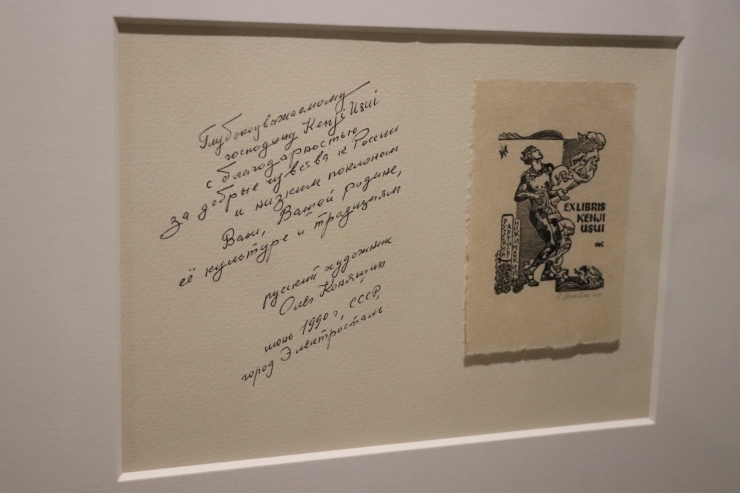 Глубокоуважаемому
господину Kenji Usui
с благодарностью
за добрые чувства к России
и низким поклоном
Вам, Вашей родине,
её культуре и традициям
русский художник
Олег Коняшин
июнь 1990 г, СССР,
город Электросталь
EXLIBRIS
KENJI
USUI